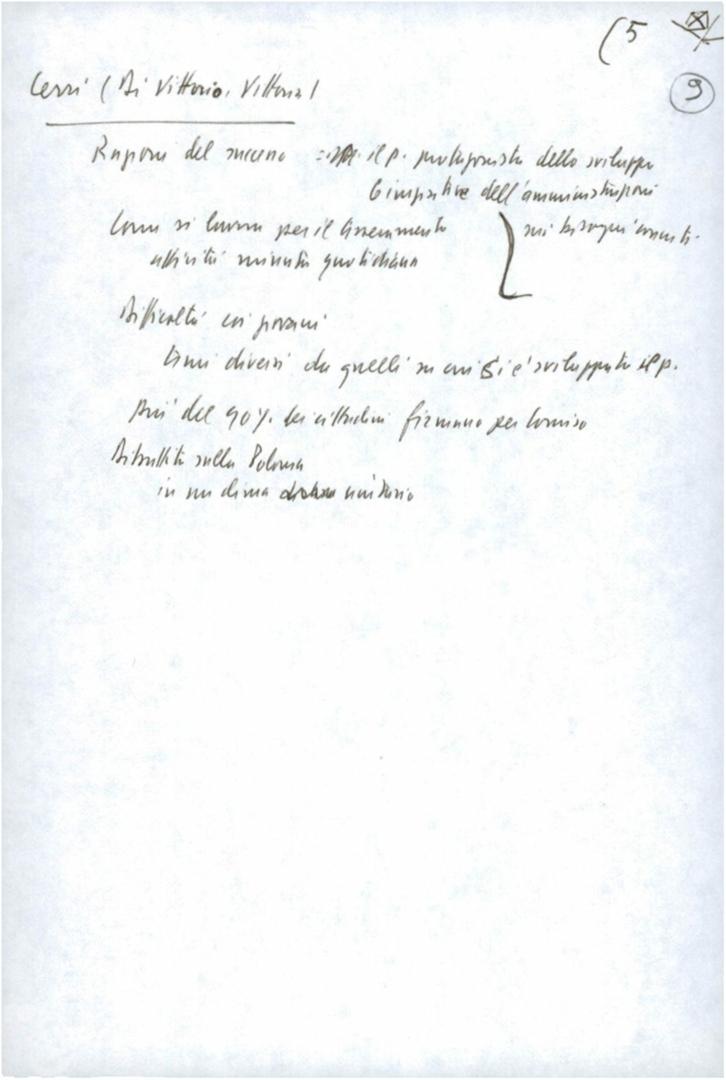 (5
9
Cerri (Di Vittorio, Vittoria)
Ragioni del successo = il p. protagonista dello sviluppo
e iniziative dell'amministrazione
Come si lavora per il tesseramento
sui bisogni
attività minuta quotidiana
Difficoltà coi giovani
temi diversi da quelli su cui si è sviluppato il p.
Più del 90% dei cittadini firmano per Comiso
Dibattito sulla Polonia
in un clima unitario